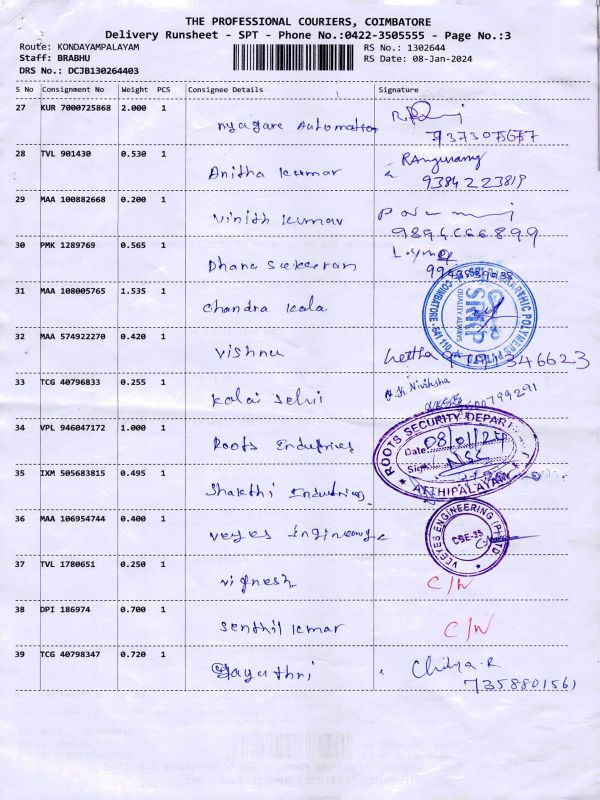 THE PROFESSIONAL COURIERS, COIMBATORE
Delivery Runsheet - SPT - Phone No.:0422-3505555 - Page No.:3
Route: KONDAYAMPALAYAM RS No.: 1302644
Staff: BRABHU RS Date: 08-Jan-2024
DRS No.: DCJB130264403
S No Consignment No Weight PCS Consignee Details Signature
27 KUR 7000725868 2.000 1
nyagare Automation
7373075677
28 TVL 901430 0.530 1
Anitha kumar
9384223819
29 MAA 100882668 0.200 1
Vinith kumar
9894666899
30 PMK 1289769 0.565 1
Dhana
31 MAA 108005765 1.535 1
Chandra kala
COIMBATORE - 641 110
SRKP
QUALITY ALWAYS
32 MAA 574922270 0.420 1
Vishnu
33 TCG 40796833 0.255 1
Kalai Selvi
Niviksha
34 VPL 946047172 1.000 1
Roots Industries
ROOTS SECURITY DEPART
Date: 08/01/24
Sign
ATTHIPALAYAM
35 IXM 505683815 0.495 1
Shakthi Industries
36 MAA 106954744 0.400 1
veyes
VEEYES ENGINEERING (P) LTD
CBE-35
37 TVL 1780651 0.250 1
vignesh C/N
38 DPI 186974 0.700 1
Senthil kumar C/N
39 TCG 40798347 0.720 1
Gayathri
7358801561